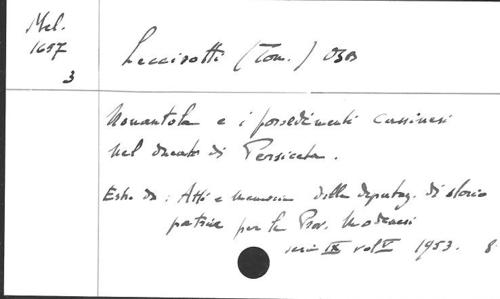 Mel.
1657
3
Leccisotti (Tom.) OSB
Nonantola e i possedimenti cassinesi
nel ducato di Persiceta.
Estr. da: Atti e memorie della deputaz. di storia
patria per le Prov. Modenesi
serie IX vol V 1953. 8